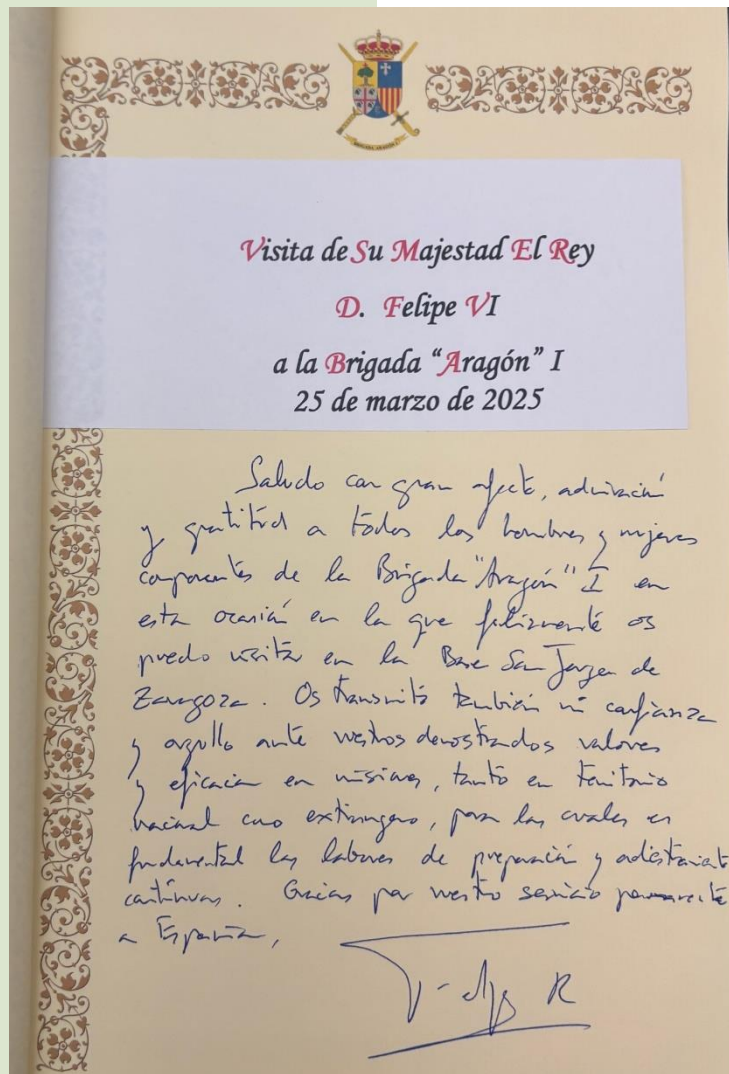 Visita de Su Majestad El Rey
D. Felipe VI
a la Brigada “Aragón” I
25 de marzo de 2025
Saludo con gran afecto, admiración
y gratitud a todos los hombres y mujeres
componentes de la Brigada "Aragón" I en
esta ocasión en la que felizmente os
puedo visitar en la Base San Jorge de
Zaragoza. Os transmito también mi confianza
y orgullo ante vuestros demostrados valores
y eficacia en misiones, tanto en territorio
nacional como extranjero, para las cuales es
fundamental las labores de preparación y adiestramiento
continuas. Gracias por vuestro servicio permanente
a España,
Felipe R